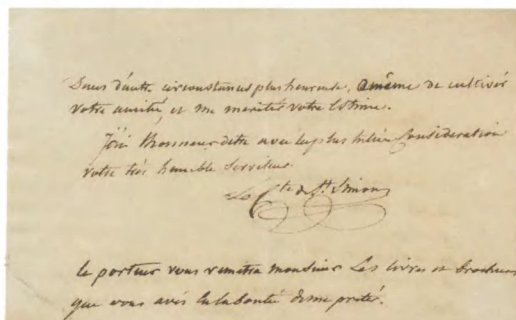 Dans d'autre circonstances plus heureuse, a même de cultiver
votre amitié, et me meriter votre Estime.
J'ai l'honneur detre avec la plus Consideration
votre très humble Serviteur
Le Cte de St. Simon
le porteur vous remettra monsieur Les livres et brochures
que vous avés eu la bonté de me preté.